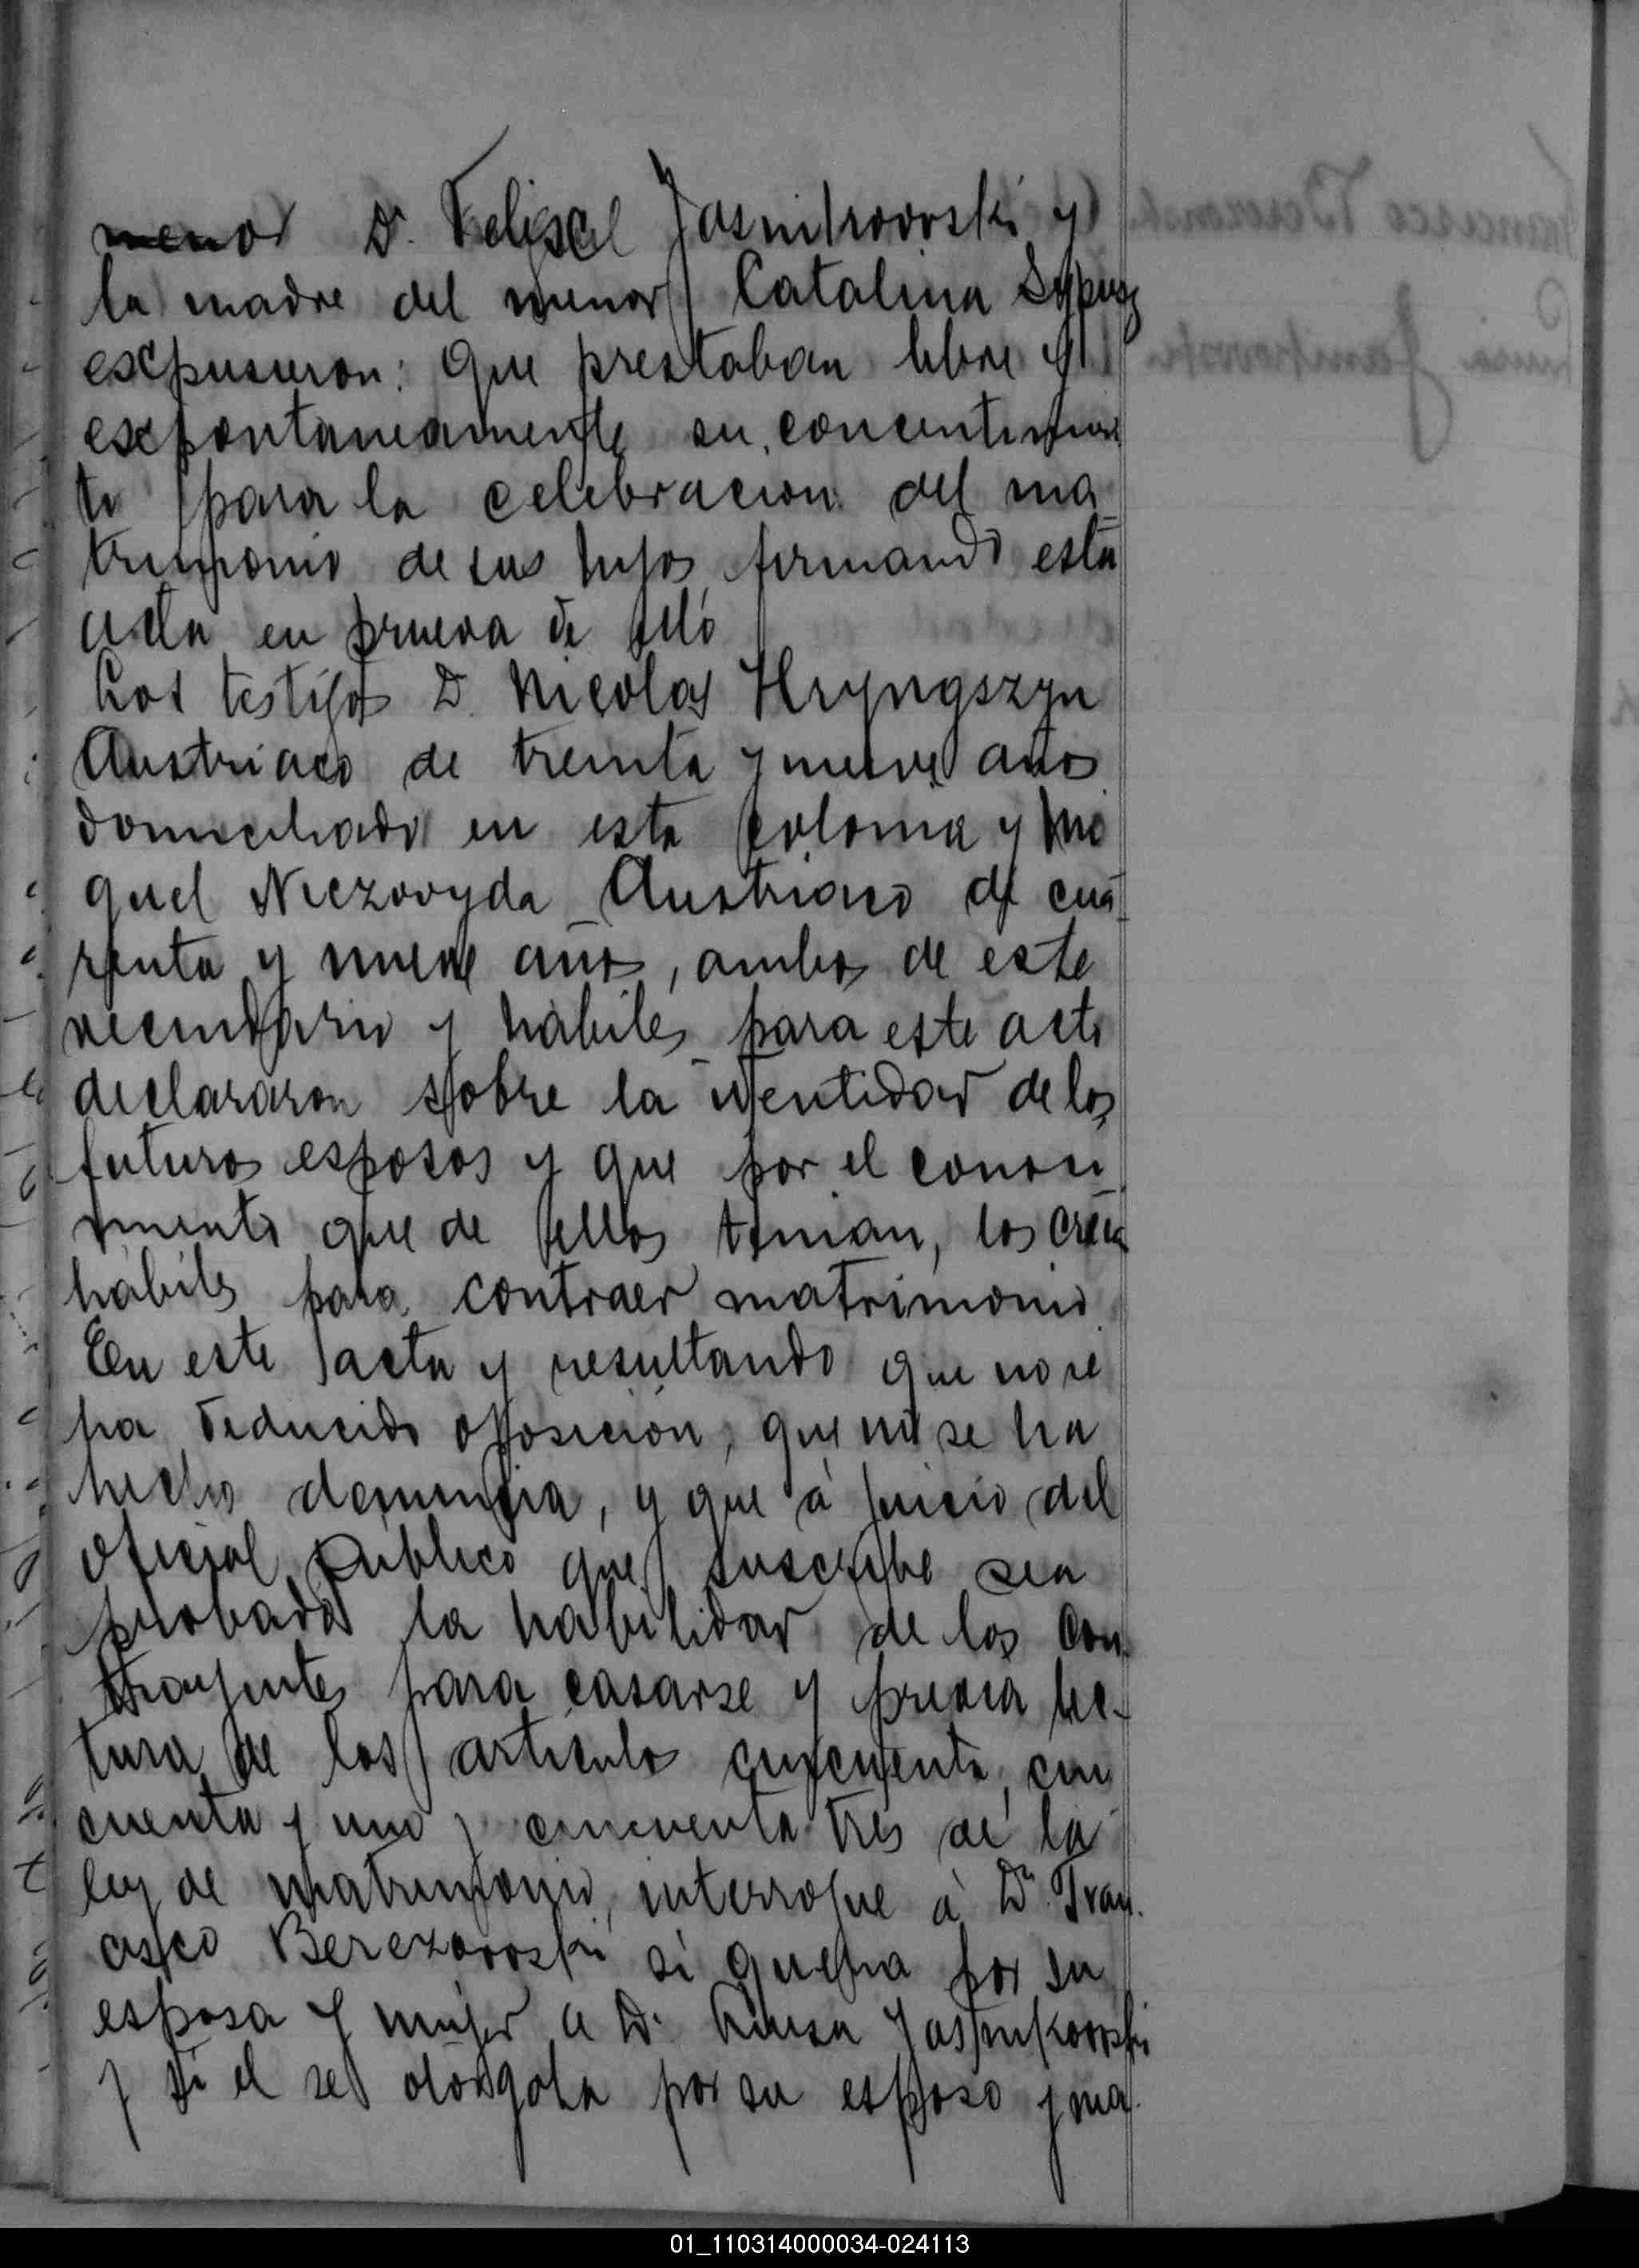 menor D. Felisel Jasnikowski y
la madre del menor Catalina Sypusz
escpusieron: Que prestaban libre y
escpontaneamente su concentimien
to para la celebracion del ma
trimonio de sus hijos firmando esta
acta en prueva de ello
Los testigos D. Nicolas Hryngszyn
Austriaco de treinta y nueve años
domiciliado en esta Colonia y Mi
guel Niezovyda Austriaco de cua
renta y nueve años, ambos de este
vecindario y hábiles para este acto
declararon sobre la identidad de los
futuros esposos y que por el conosi
miento que de ellos tenian, los creia
hábiles para contraer matrimonio
En este acta y resultando que no se
ha deducido oposición, que no se ha
hecho denuncia, y que á juicio del
oficial público que suscribe sea
probada la habilidad de los con
trayentes para casarse y previa lec-
tura de los articulos cincuenta, cin
cuenta y uno y cincuenta tres de la
ley de matrimonio, interrogue á Dn. Fran
cisco Berezowski si queria por su
esposa y mujer a Da. Luisa Jasnikowski
y si el se otorgaba por su esposo y ma
01_110314000034-024113